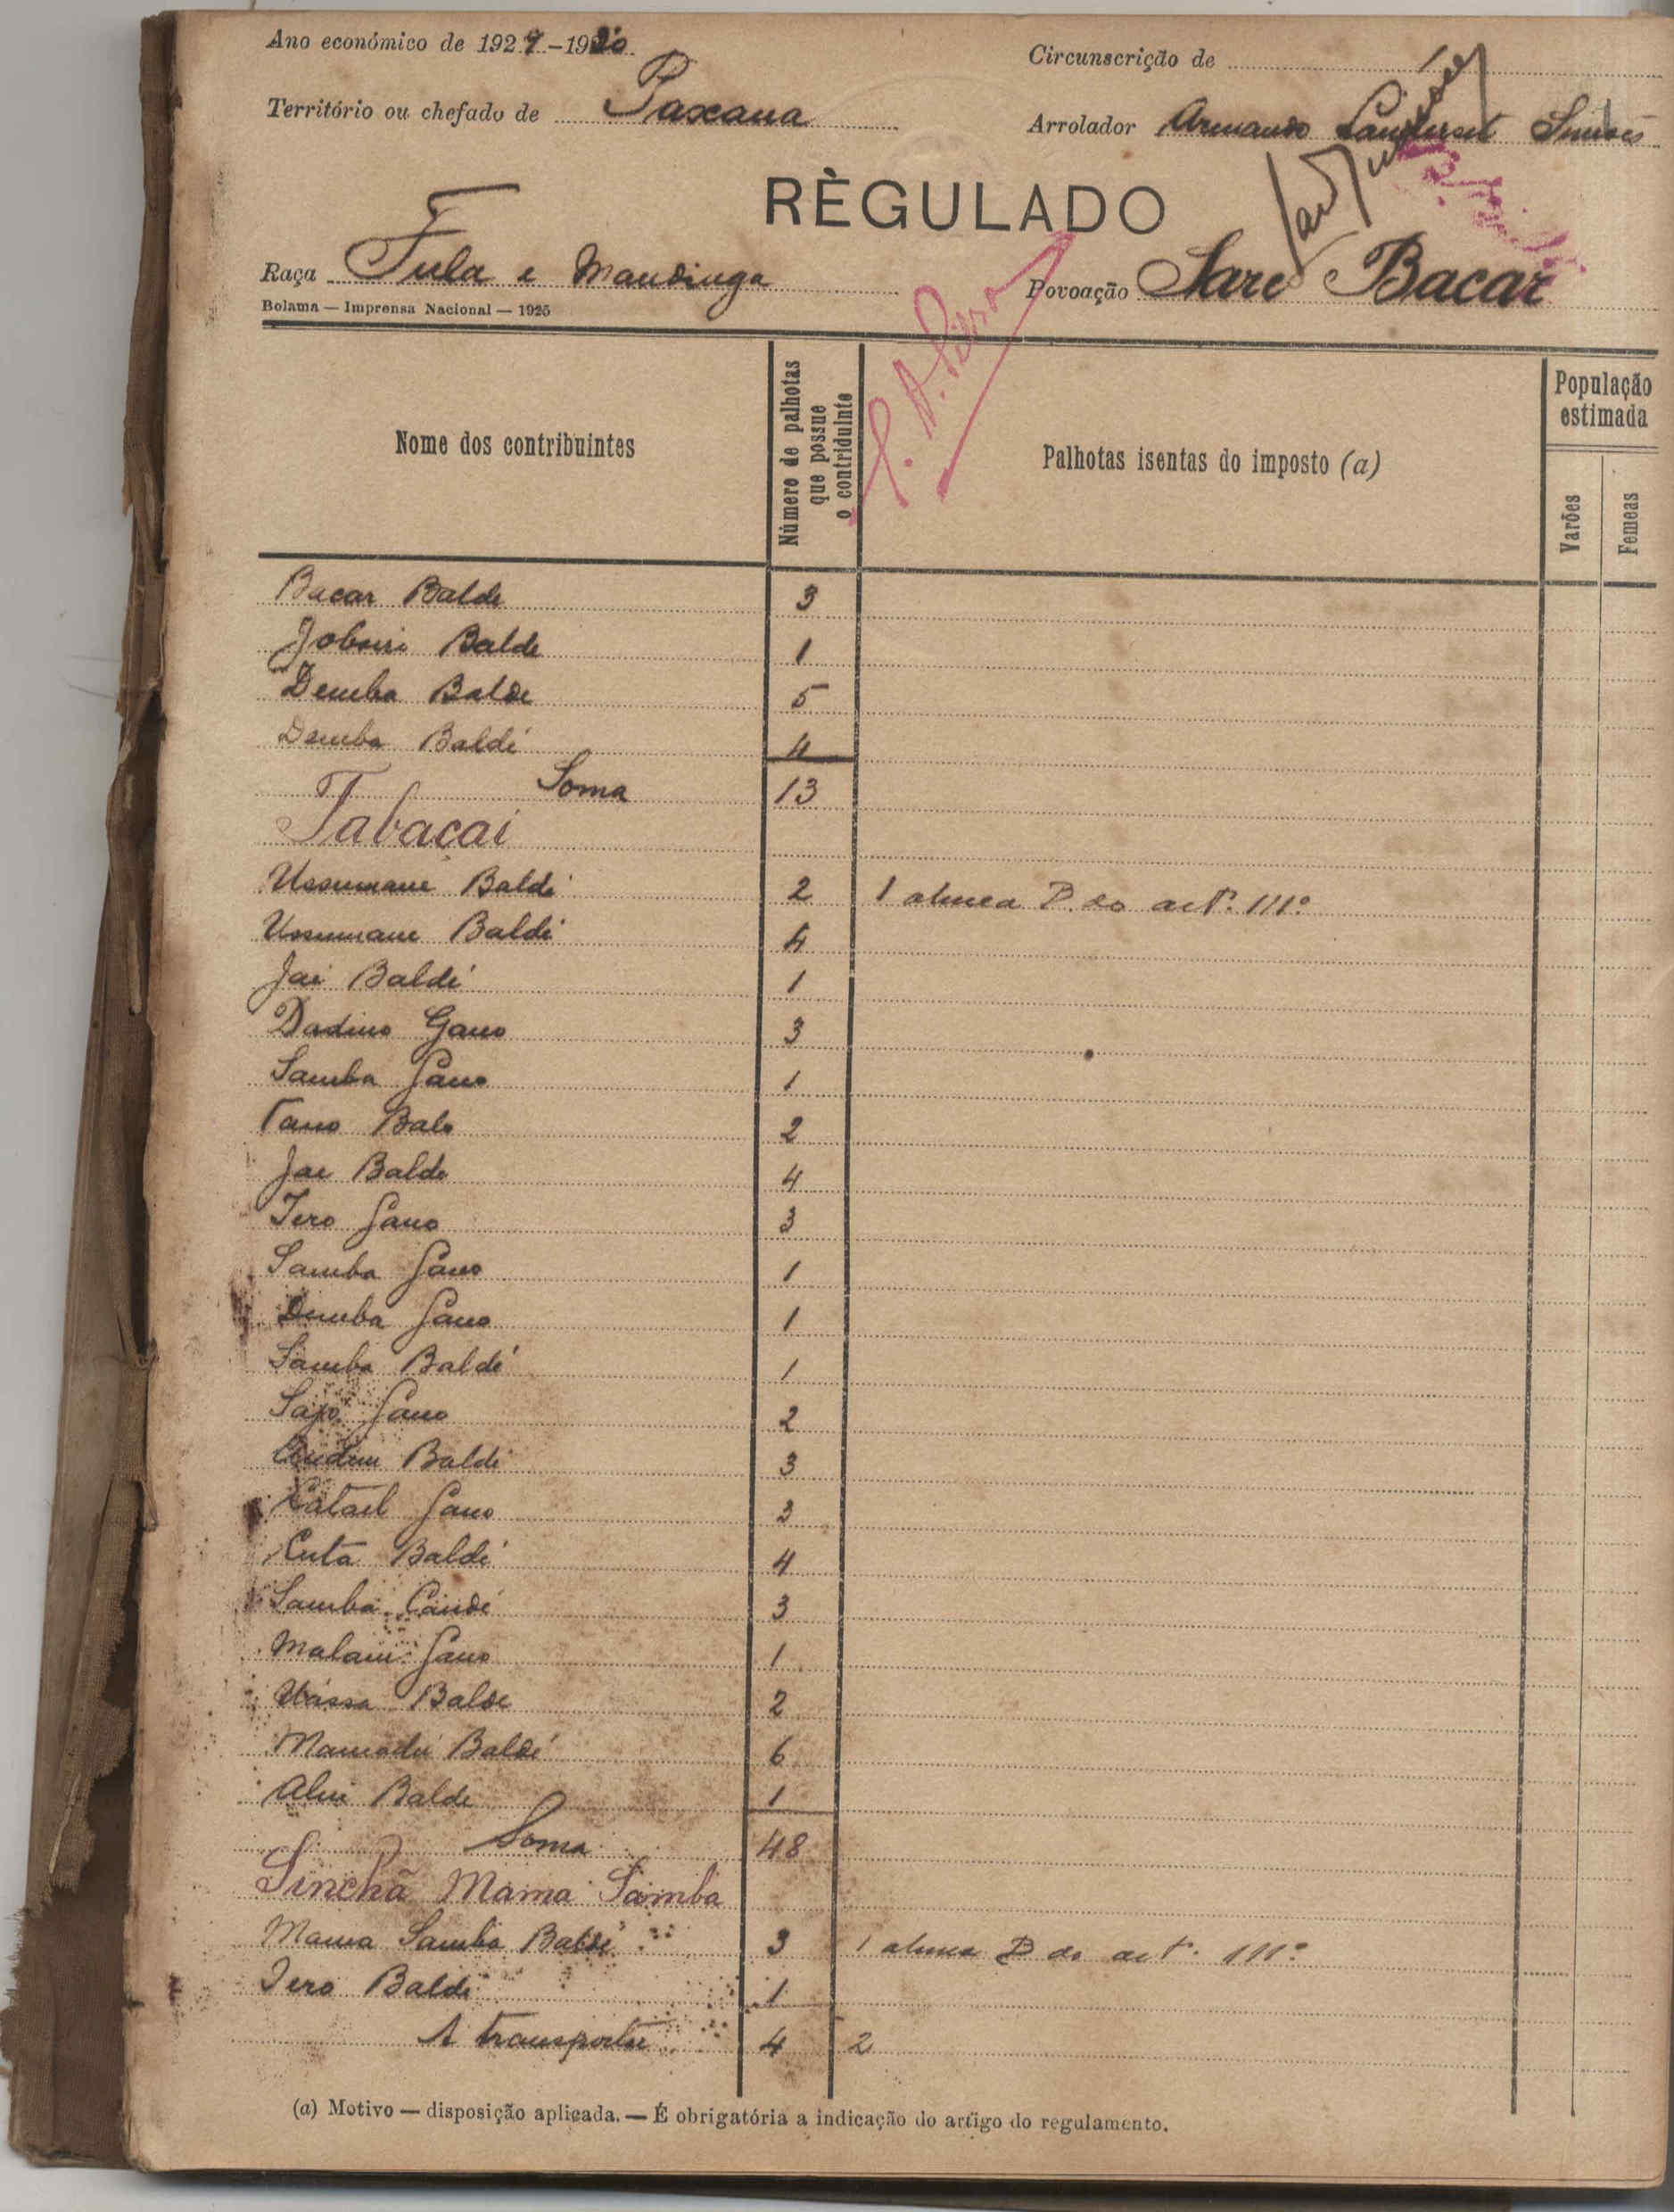 Ano económico de 1929-1930
Circunscrição de
Território ou chefado de Paxana
Arrolador Armando Landerset Simões
RÈGULADO
Raça Fula e Mandinga
Povoação Sare Bacar
Bolama — Imprensa Nacional — 1925
Nome dos contribuintes
Número de palhotas que possue o contriduinte
Palhotas isentas do imposto (a)
População estimada
Varões
Femeas
Bacar Balde 3
Balde 1
Demba Balde 5
Demba Baldé 4
Soma 13
Tabacai
Ussumane Baldé 2 1 alinea B. do art.º 111º
Ussumane Baldé 4
Jai Baldé 1
Dadino Gano 3
Samba Gano 1
Tano Balo 2
Jae Balde 4
Iero Gano 3
Samba Gano 1
Demba Gano 1
Samba Baldé 1
Sajo Gano 2
Baldé 3
Gano 3
Cuta Baldé 4
Samba Candé 3
Malam Gano 1
Uassa Balde 2
Mamadú Baldé 6
Aliu Balde 1
Soma 48
Sinchã Mama Samba
Mama Samba Baldé 3 1 alinea B do art.º 111º
Iero Baldé 1
A transportar 4 2
(a) Motivo — disposição aplicada. — É obrigatória a indicação do artigo do regulamento.